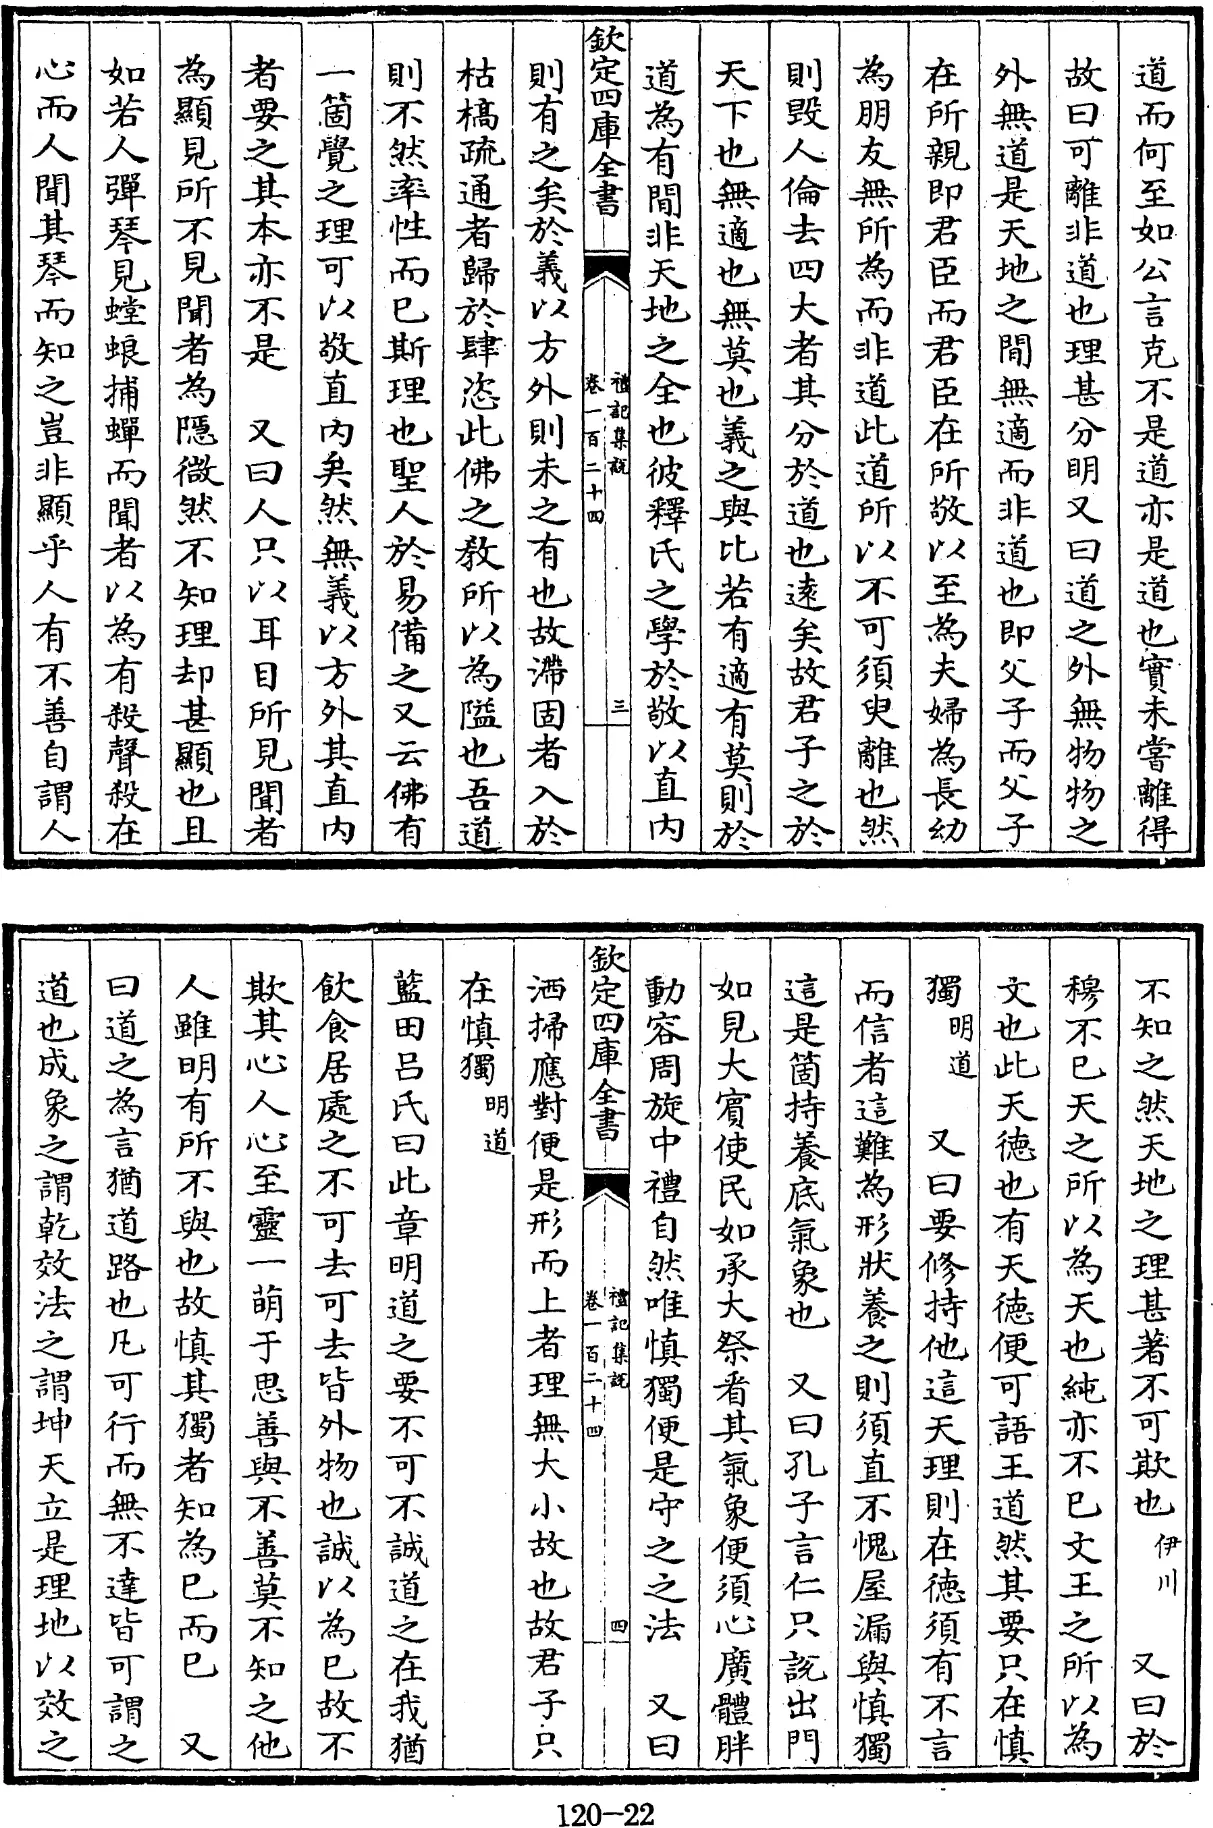 道而何至如公言克不是道亦是道也實未嘗離得
故曰可離非道也理甚分明又曰道之外無物物之
外無道是天地之間無適而非道也即父子而父子
在所親即君臣而君臣在所敬以至為夫婦為長幼
為朋友無所為而非道此道所以不可須臾離也然
則毀人倫去四大者其分於道也遠矣故君子之於
天下也無適也無莫也義之與比若有適有莫則於
道為有間非天地之全也彼釋氏之學於敬以直內
欽定四庫全書
禮記集說
卷一百二十四
三
則有之矣於義以方外則未之有也故滯固者入於
枯槁疏通者歸於肆恣此佛之敎所以為隘也吾道
則不然率性而已斯理也聖人於易備之又云佛有
一箇覺之理可以敬直內矣然無義以方外其直內
者要之其本亦不是　又曰人只以耳目所見聞者
為顯見所不見聞者為隱微然不知理却甚顯也且
如若人彈琴見螳螂捕蟬而聞者以為有殺聲殺在
心而人聞其琴而知之豈非顯乎人有不善自謂人
不知之然天地之理甚著不可欺也伊川　又曰於
穆不已天之所以為天也純亦不已文王之所以為
文也此天德也有天德便可語王道然其要只在慎
獨明道　又曰要修持他這天理則在德須有不言
而信者這難為形狀養之則須直不愧屋漏與慎獨
這是箇持養底氣象也　又曰孔子言仁只說出門
如見大賓使民如承大祭看其氣象便須心廣體胖
動容周旋中禮自然唯慎獨便是守之之法　又曰
欽定四庫全書
禮記集說
卷一百二十四
四
洒掃應對便是形而上者理無大小故也故君子只
在慎獨明道
藍田呂氏曰此章明道之要不可不誠道之在我猶
飲食居處之不可去可去皆外物也誠以為已故不
欺其心人心至靈一萌于思善與不善莫不知之他
人雖明有所不與也故慎其獨者知為已而已　又
曰道之為言猶道路也凡可行而無不達皆可謂之
道也成象之謂乾效法之謂坤天立是理地以效之
120-22